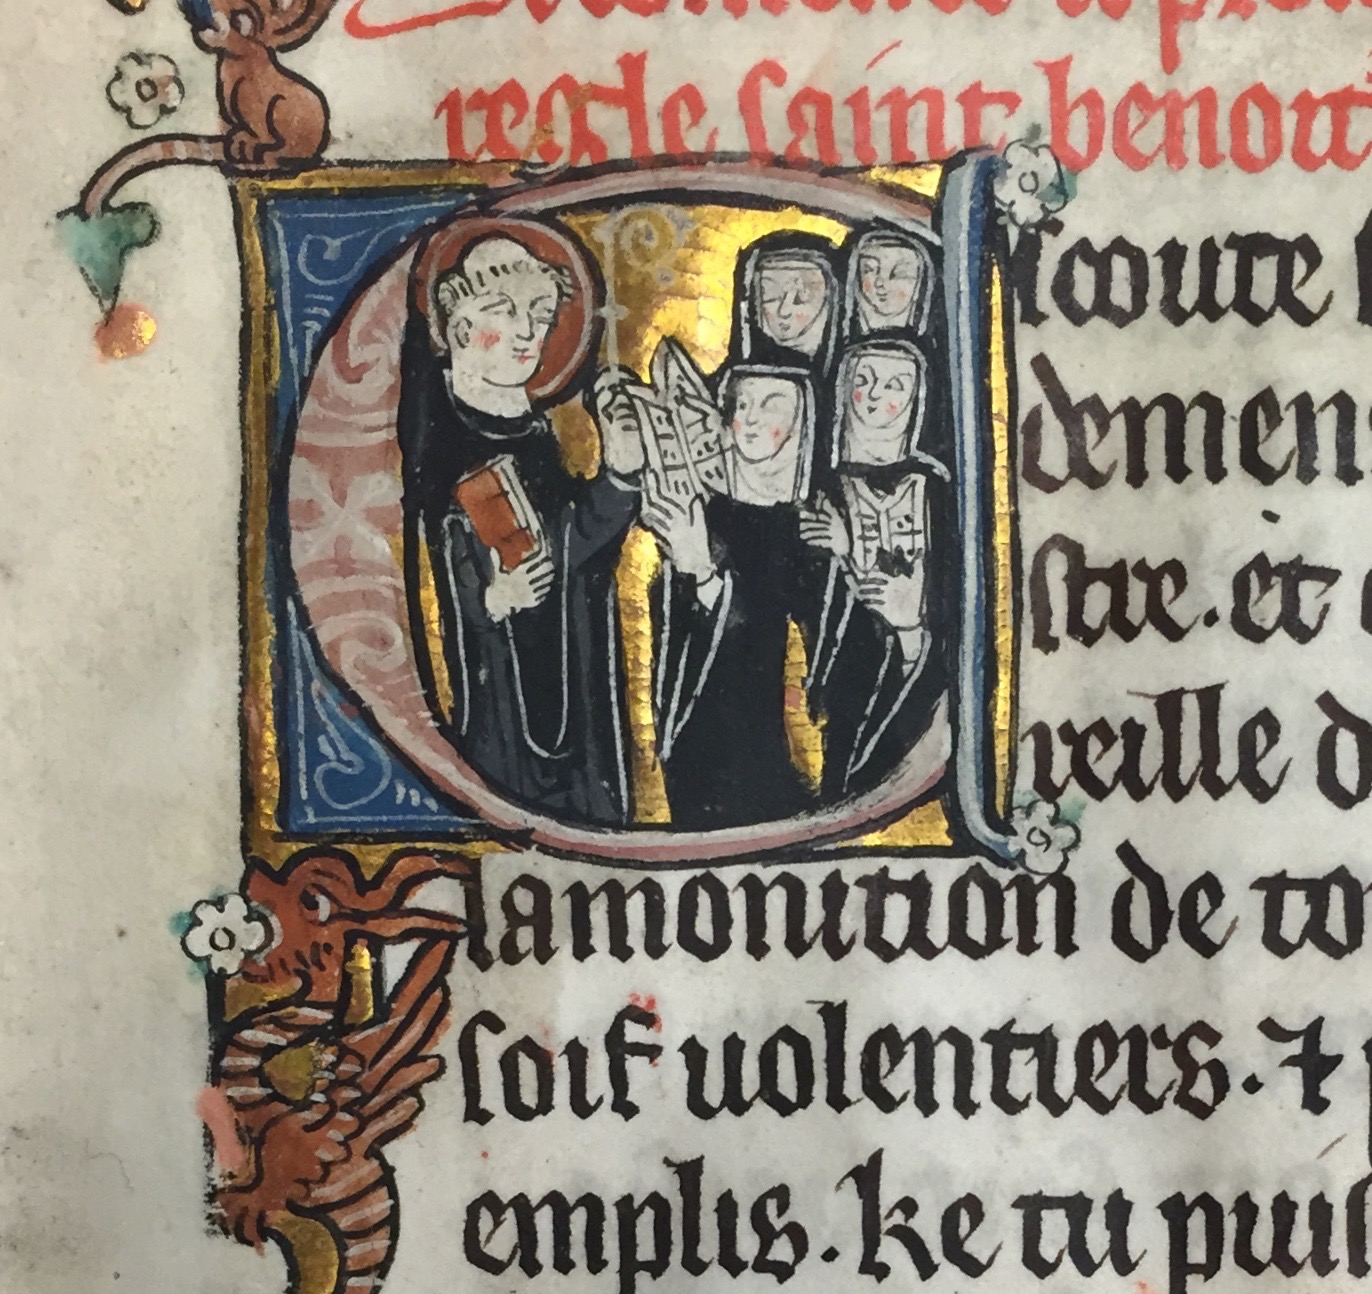 regle saint benoit
scoute
demen
stre. et
reille d
lamonition de to
soif uolentiers. ⁊
emplis. ke tu puis